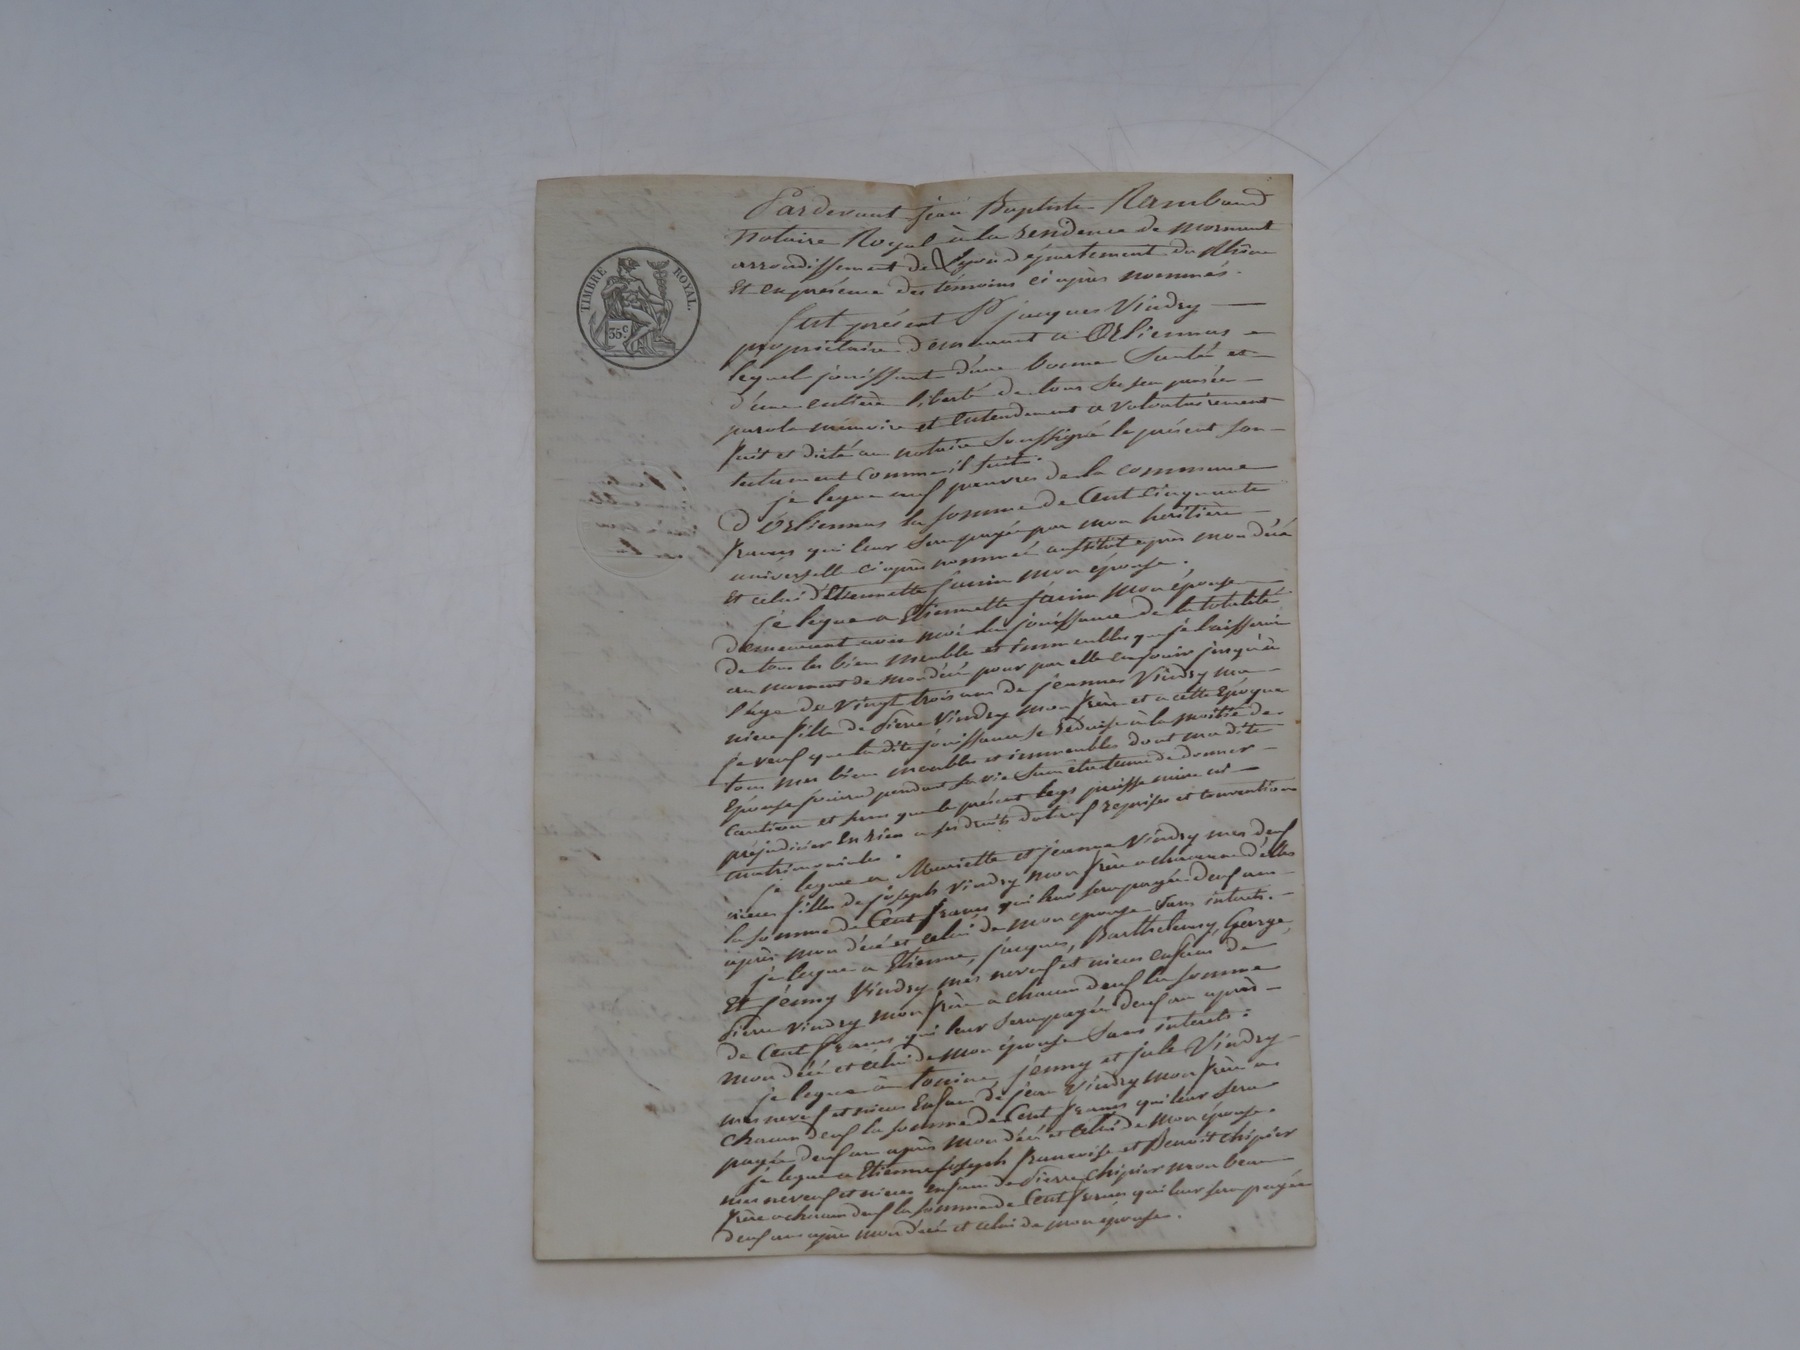 TIMBRE ROYAL.
35 c.
Pardevant jean Baptiste Rambaud
notaire Royal à la residence de mornant
arrondissement de Lyon département du Rhône
Et en présence des témoins ci après nommés.
fut présent Sr jacques Vindry
propriétaire demeurant a Orliennas
lequel jouissant d'une bonne Santé et
d'une entière liberté de tous ses sen pensée
parole mémoire et entendement a volontairement
fait et dicté au notaire Soussigné le présent son
testament comme il suit.
je legue aux pauvres de la commune
d'Orliennas la somme de Cent cinquante
francs qui leur sera payée par mon heritière
universelle ci après nommée aussitot après mon décé
Et celui d'Etiennette favin mon épouse.
je legue a Etiennette favin mon épouse
demeurant avec moi la jouissance de la totalité
de tous les bien meubles et immeubles que je laisserai
au moment de mon décé pour par elle en jouir jusqu'à
l'age de vingt trois ans de jeannes Vindry ma
niece fille de Pierre Vindry mon frère et a cette Epoque
je veux que la dite jouissance se reduise à la moitié de
tous mes bien meubles et immeubles dont ma dite
Epouse jouira pendant sa vie Sans etre tenue de donner
Caution et sans que le présent legs puisse nuire ni
préjudicier en rien a ses droits dotaux reprises et conventions
matrimoniales.
je legue a Mariette et jeanne Vindry mes deux
nieces filles de joseph Vindry mon frère a chacune d'elles
la somme de Cent francs qui leur sera payée deux an
après mon décé et celui de mon épouse Sans interets.
je legue a Etienne, jacques, Barthelemy, George,
Et jenny Vindry mes neveux et nieces enfans de
Pierre Vindry mon frère a chacun deux la somme
de Cent francs qui leur sera payée deux an après
mon décé et celui de mon épouse Sans interets.
je legue à tonine, jenny et jule Vindry
mes neveux et nieces Enfans de jean Vindry mon frère a
chacun deux la somme de Cent francs qui leur sera
payée deux an après mon décé et celui de mon épouse.
je legue a Etienne joseph francoise et Benoit chipier
mes neveux et nieces enfans de Pierre Chipier mon beau
frère a chacun deux la somme de Cent francs qui leur sera payée
deux ans après mon décé et celui de mon épouse.